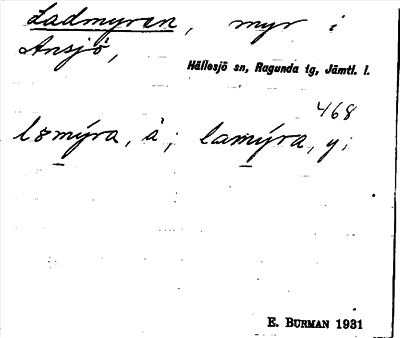 Ladmyren, myr i
Ansjö,
Hällesjö sn, Ragunda tg, Jämtl. l.
468
lomýra, å; lamýra, y;
E. BURMAN 1931